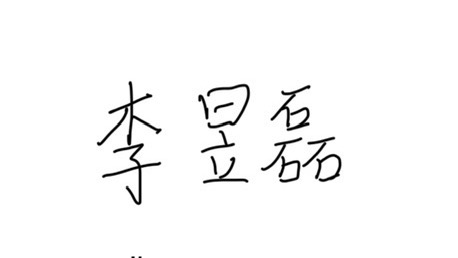 李昱磊